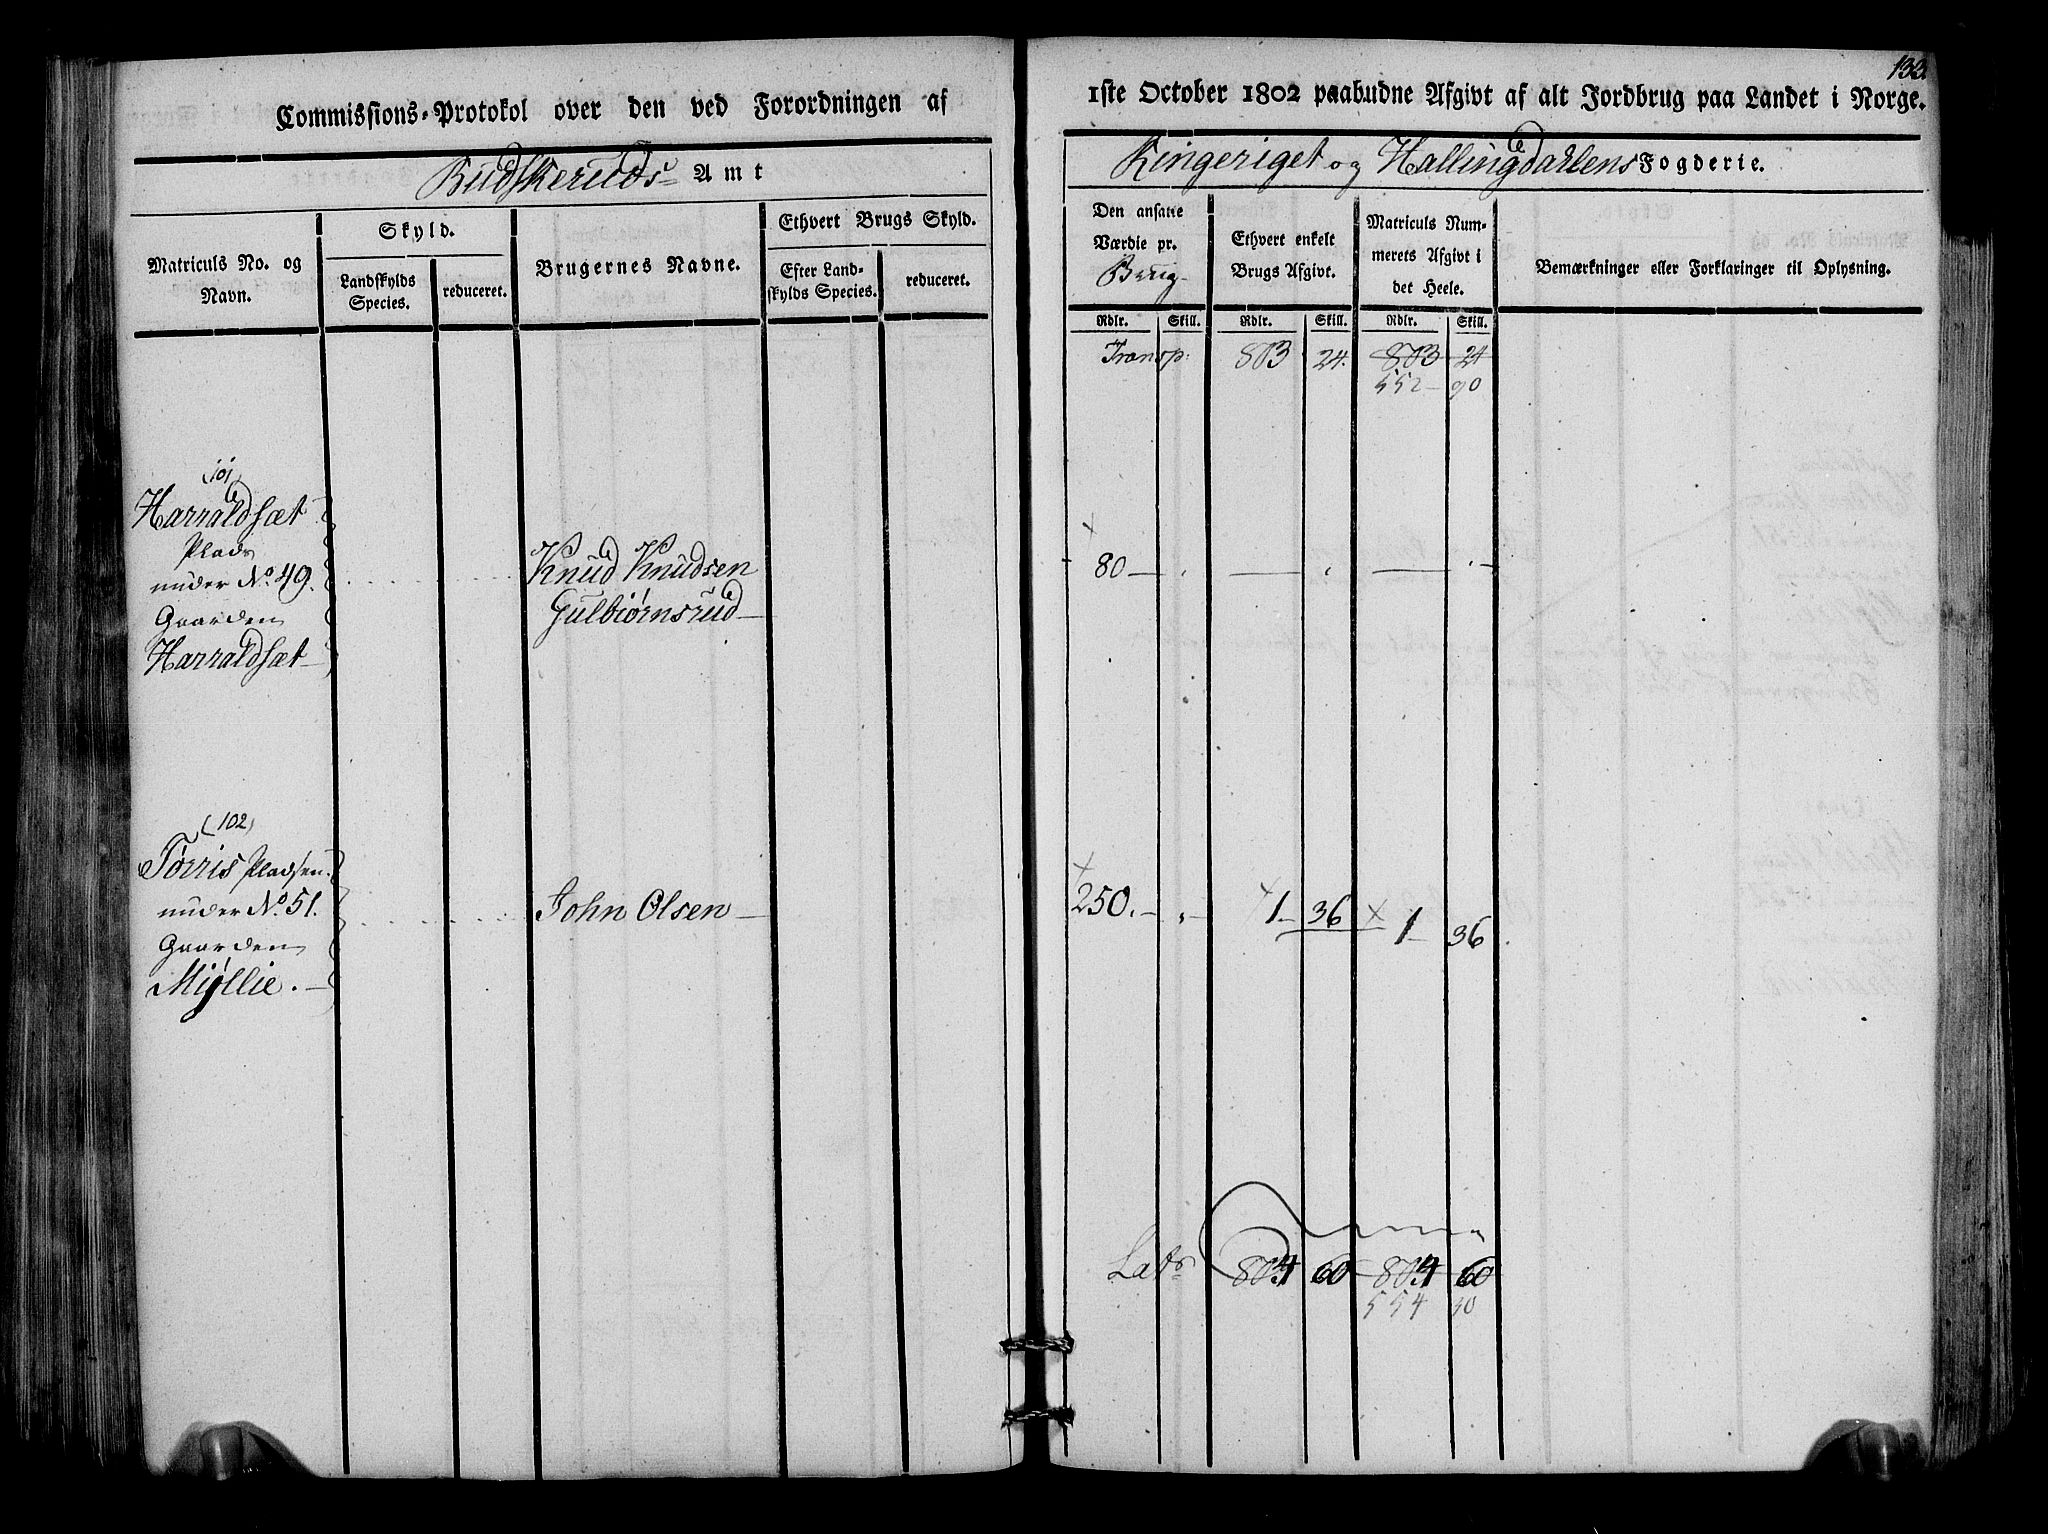 133.
Commissions-Protokol over den ved Forordningen af 1ste October 1802 paabudne Afgivt af alt Jordbrug paa Landet i Norge.
Budskeruds Amt
Ringeriget og Hallingdahlens Fogderie.
Matriculs No. og Navn.
Skyld.
Landskylds Species.
reduceret.
Brugernes Navne.
Ethvert Brugs Skyld.
Efter Landskylds Species.
reduceret.
Den ansatte Værdie pr. Brug
Ethvert enkelt Brugs Afgivt.
Matriculs Nummerets Afgivt i det Heele.
Bemærkninger eller Forklaringer til Oplysning.
Rdlr. Skill. Rdlr. Skill. Rdlr. Skill.
Transp: 803 24. 803 24
552 - 90
(101)
Harraldsæt
Plads
under No. 49.
Gaarden
Harraldsæt
Knud Knudsen
Gulbiørnsrud
80
(102)
Torris Pladsen
under No. 51.
Gaarden
Myllie.
John Olsen
250. 1 36 1 36
Lats 804 60 804 60
554 30